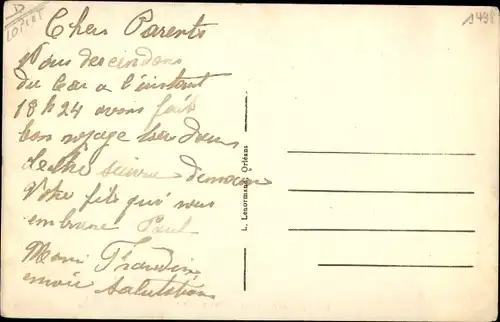 Chers Parents
Nous descendons
du Car a l'instant
18h24 avons fait
bon voyage
suivre demain
Votre fils qui vous
embrasse Paul
envoie salutations
L. Lenormand, Orléans